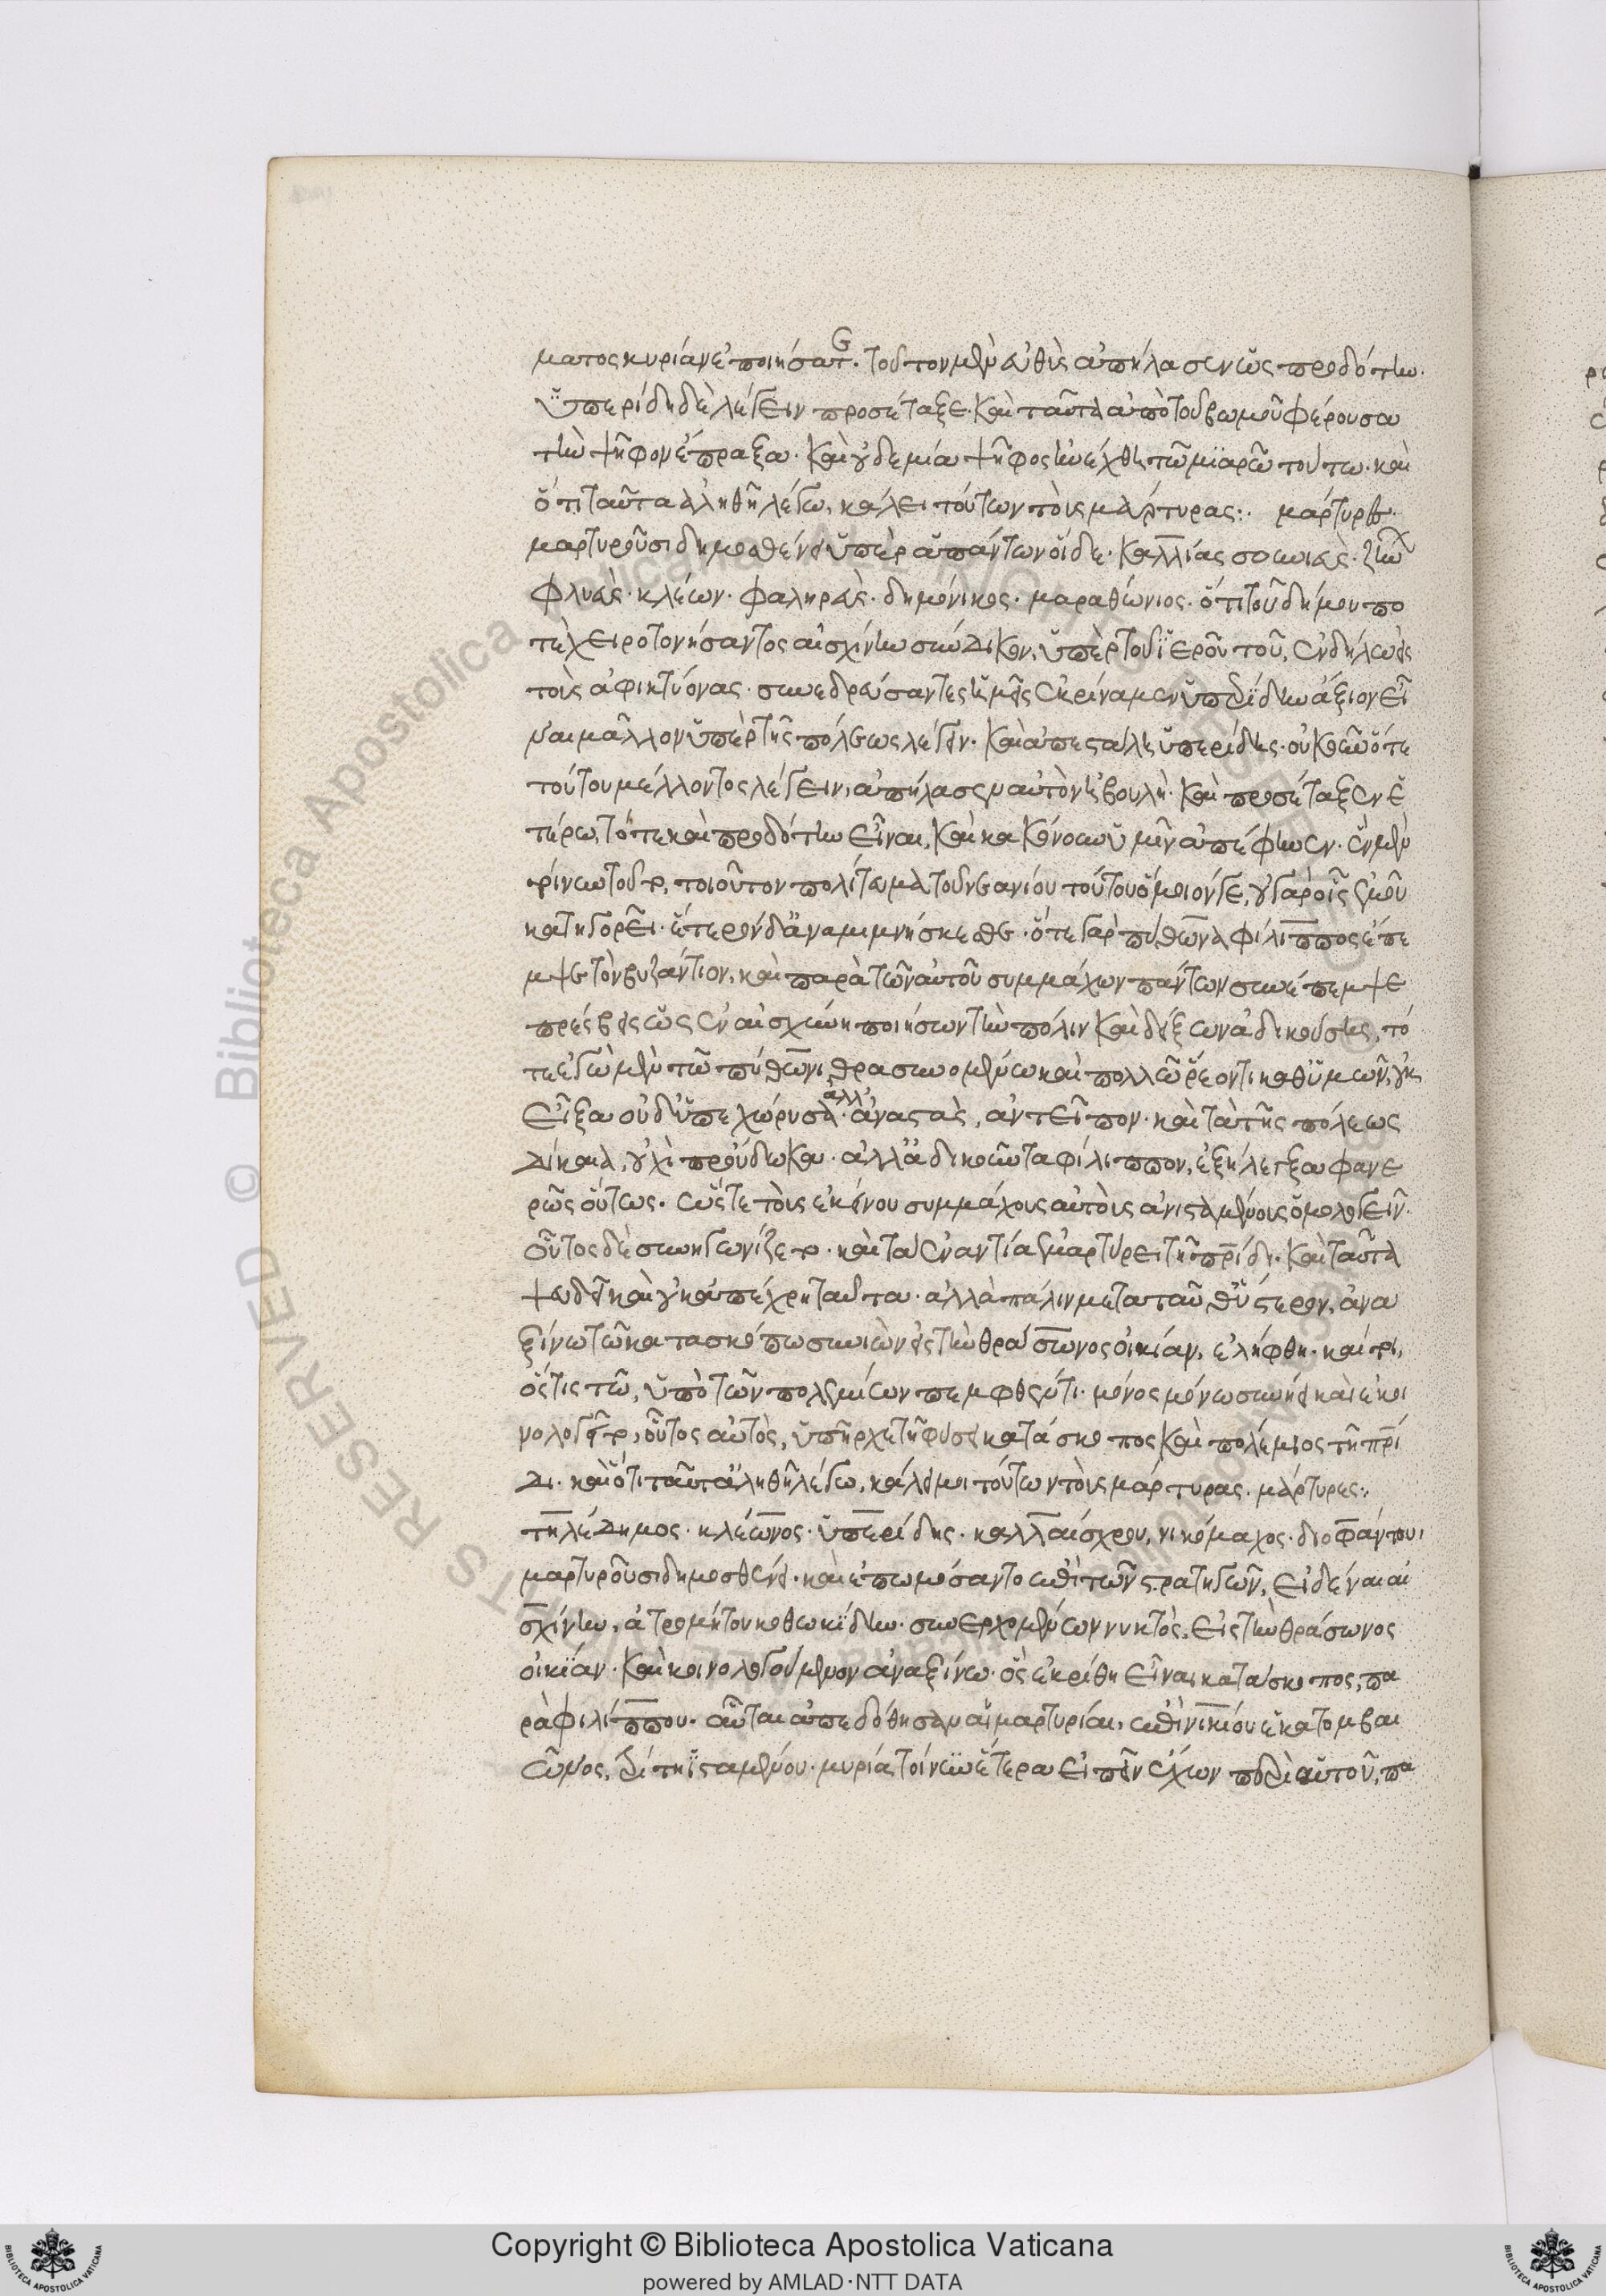 ματος κυρίαν ἐποιήσατε. τοῦτον μὲν εὐθὺς ἀπήλασεν ὡς προδότην.
ὑπερίδη δὲ λέγειν προσέταξε. καὶ ταῦτα ἀπὸ τοῦ βωμοῦ φέρουσα
τὴν ψῆφον ἔπραξα. καὶ οὐδεμία ψῆφος ἠνέχθη τῶ μϊαρῶ τούτω. καὶ
ὅτι ταῦτα ἀληθῆ λέγω, κάλει τούτων τοὺς μάρτυρας:. μάρτυρες.
μαρτυροῦσι δημοσθένει ὑπὲρ ἁπάντων οἵδε. καλλίας σουνιεὺς. ζήνων
φλυεὺς. κλέων. φαληρεὺς. δημόνικος. μαραθώνιος. ὅτι τοῦ δήμου πο
τὲ χειροτονήσαντος αἰσχίνην σύνδικον, ὑπὲρ τοῦ ἱεροῦ τοῦ, ἐν δήλω εἰς
τοὺς ἀφικτύονας. συνεδρεύσαντες ἡμεῖς ἐκρίναμεν ὑπερίδην ἄξιον εἶ
ναι μᾶλλον ὑπὲρ τῆς πόλεως λέγειν. καὶ ἀπεστάλη ὑπερίδης. οὐκοῦν ὅτε
τούτου μέλλοντος λέγειν, ἀπήλασεν αὐτὸν ἡ βουλὴ. καὶ προσέταξεν ἑ
τέρω, τότε καὶ προδότην εἶναι, καὶ κακόνουν ὑμῖν ἀπέφηνεν. ἓν μὲν
τοίνυν τοῦτο, τοιοῦτον πολίτευμα τοῦ νεανίου τούτου ὅμοιόν γε, οὐ γὰρ οἷς ἐμοῦ
κατηγορεῖ. ἕτερον δὲ ἀναμιμνήσκεσθε. ὅτε γὰρ πύθωνα φίλιππος ἔπε
μψε τὸν βυζάντιον, καὶ παρὰ τῶν αὐτοῦ συμμάχων πάντων συνέπεμψε
πρέσβεις ὡς ἐν αἰσχύνη ποιήσων τὴν πόλιν καὶ δείξων ἀδικοῦσαν, τό
τε ἐγὼ μὲν τῶ πύθωνι θρασυνομένω καὶ πολλῶ ῥέοντι καθ' ὑμῶν, οὐκ
εἶξα οὐδ' ὑπεχώρησα. ἀλλ' ἀναστὰς, ἀντεῖπον. καὶ τὰ τῆς πόλεως
δίκαια, οὐχὶ προύδωκα. ἀλλ' ἀδικοῦντα φίλιππον, ἐξήλεγξα φανε
ρῶς οὕτως. ὥστε τοὺς ἐκείνου συμμάχους αὐτοὺς ἀνισταμένους ὁμολογεῖν.
οὗτος δὲ συνηγωνίζετο. καὶ τὰ ἐναντία ἐμαρτύρει τῆ πρίδι. καὶ ταῦτα
ψευδῆ καὶ οὐκ ἀπέχρη ταῦτα. ἀλλὰ πάλιν μετὰ ταῦθ' ὕστερον, ἀνα
ξίνω τῶ κατασκόπω συνιὼν εἰς τὴν θράσωνος οἰκίαν, ἐλήφθη. καί τοι,
ὅστις τῶ, ὑπὸ τῶν πολεμίων πεμφθέντι. μόνος μόνω συνήει καὶ ἐκοι
νολογεῖτο, οὗτος αὐτὸς, ὑπῆρχε τῆ φύσει κατάσκοπος καὶ πολέμιος τῆ πρί
δι. καὶ ὅτι ταῦτα ἀληθῆ λέγω, κάλει μοι τούτων τοὺς μάρτυρας. μάρτυρες:.
τηλέδημος. κλέωνος. ὑπερίδης. καλλαίσχρου, νικόμαχος. διοφάντου,
μαρτυροῦσι δημοσθένει. καὶ ἐπωμόσαντο ἐπὶ τῶν στρατηγῶν, εἰδέναι αἰ
σχίνην, ἀτρομήτου κοθωκίδην. συνερχομένων νυκτὸς, εἰς τὴν θράσωνος
οἰκίαν. καὶ κοινολογούμενον ἀναξίνω. ὃς ἐκρίθη εἶναι κατάσκοπος, πα
ρὰ φιλίππου. αὗται ἀπεδόθησαν αἱ μαρτυρίαι, ἐπὶ νικίου ἑκατομβαι
ῶνος, τρίτη ἱσταμένου. μυρία τοίνυν ἕτερα εἰπεῖν ἔχων περὶ αὐτοῦ, πα